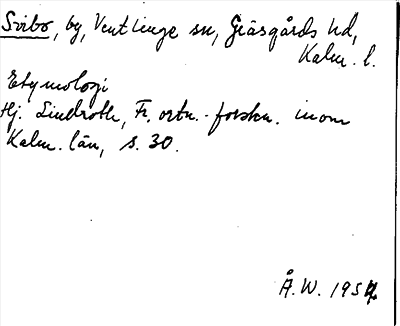 Svibo, by, Ventlinge sn, Gräsgårds hd,
Kalm. l.
Etymologi
Hj. Lindroth, Fr. ortn.-forskn. inom
Kalm. län, s. 30.
Å.W. 1954